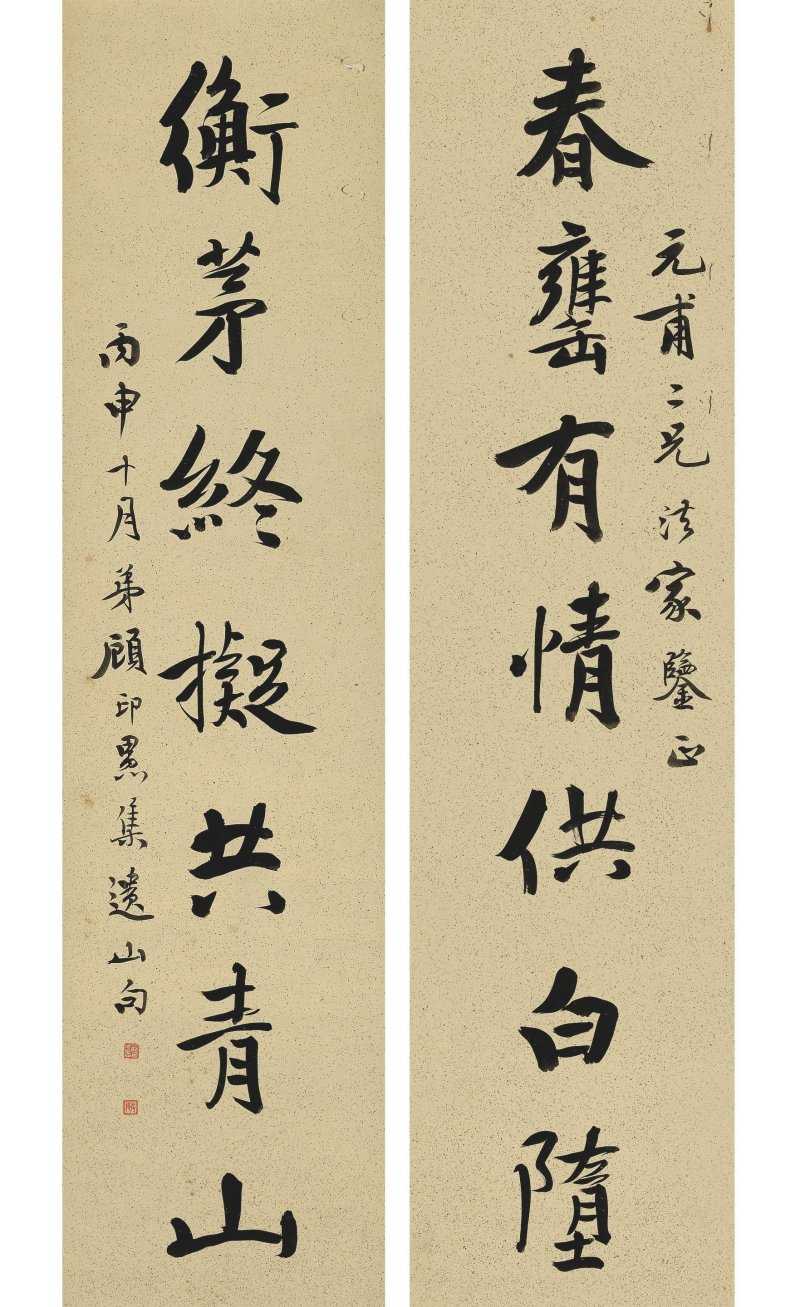 元甫二兄法家鑒正
春罋有情供白墮
衡茅終擬共青山
丙申十月弟顧印愚集遺山句